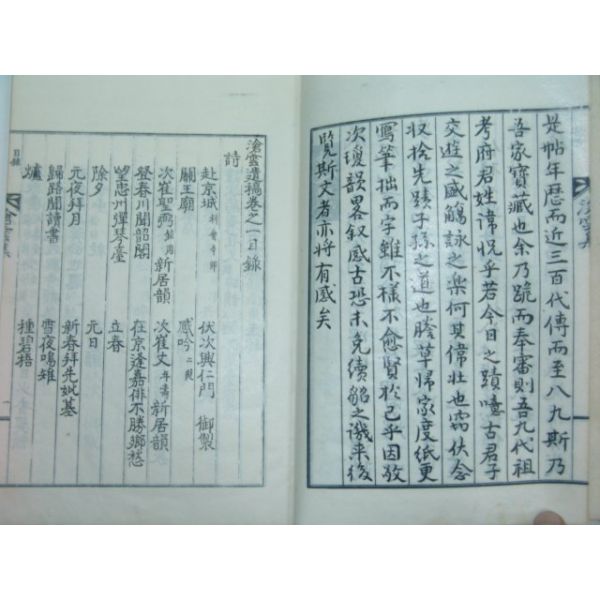 是帖年歷而近三百代傳而至八九斯乃
吾家寶藏也余乃跪而奉審則吾九代祖
考府君姓諱怳乎若今日之蹟噫古君子
交遊之盛觴詠之樂何其偉壯也窃伏念
収拾先蹟子孫之道也謄草歸家度紙更
寫筆拙而字雖不樣不愈賢於已乎因敬
次瓊韻畧叙感古恐未免續貂之譏来後
覧斯文者亦將有感矣
滄雲集
滄雲遺稿卷之一目錄
詩
赴京城 伏次興仁門 御製
關王廟 感吟二現
次崔聖燕 新居韻 次崔丈 新居韻
登春川聞韶閣 在京逢嘉俳不勝鄉愁
望忠州彈琴臺 立春
除夕 元日
元夜拜月 新春拜先妣墓
歸路聞讀書 雪夜鳴雉
爐 種碧梧
目錄
滄雲集
一